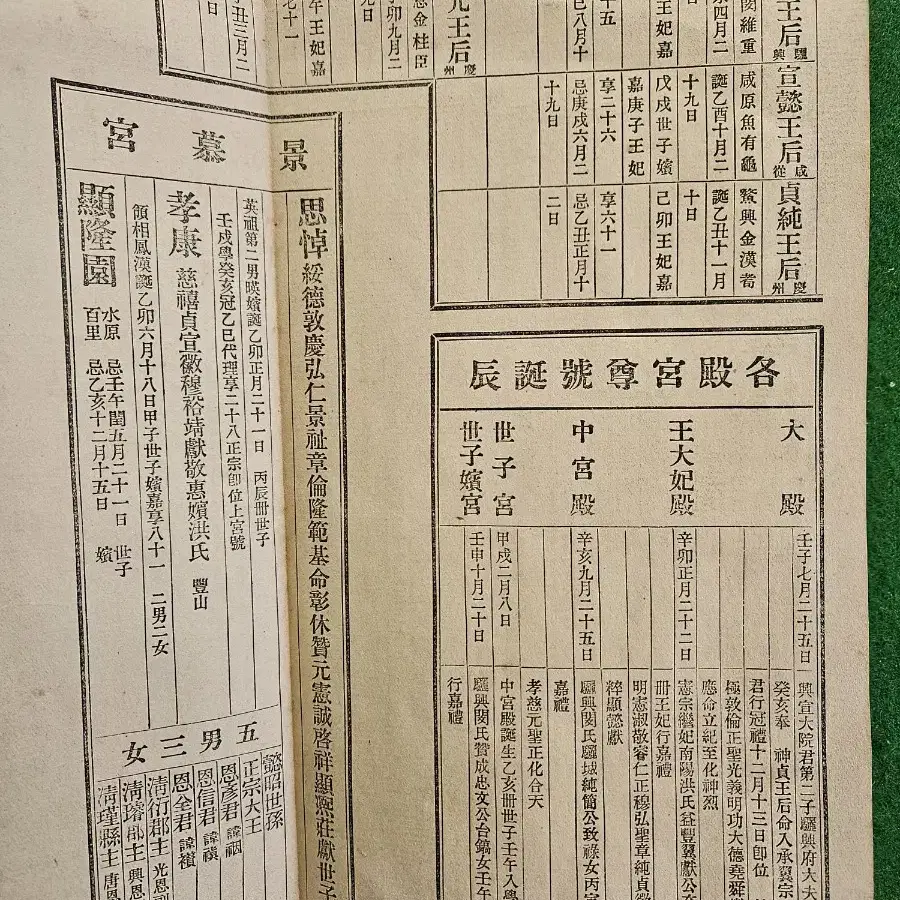 王后 驪興
閔維重
宣懿王后 咸從
咸原魚有龜
誕乙酉十月二
十九日
戊戌世子嬪
嘉庚子王妃
享二十六
忌庚戌六月二
十九日
貞純王后 慶州
鰲興金漢耉
誕乙丑十一月
十日
己卯王妃嘉
享六十一
忌乙丑正月十
二日
元王后 慶州
恩金柱臣
丁卯九月二
午王妃嘉
七十一
丑三月二
各殿宮尊號誕辰
大殿
壬子七月二十五日
興宣大院君第二子驪興府大夫
癸亥奉 神貞王后命入承翼宗
君行冠禮十二月十三日卽位
極敦倫正聖光義明功大德堯舜
應命立紀至化神烈
王大妃殿
辛卯正月二十二日
憲宗繼妃南陽洪氏益豐翼獻公
冊王妃行嘉禮
明憲淑敬睿仁正穆弘聖章純貞徽
粹顯懿獻
中宮殿
辛亥九月二十五日
驪興閔氏驪城純簡公致祿女丙
嘉禮
孝慈元聖正化合天
世子宮
甲戌二月八日
中宮殿誕生乙亥冊世子壬午入學
世子嬪宮
壬申十月二十日
驪興閔氏贊成忠文公台鎬女壬午
行嘉禮
景慕宮
思悼綏德敦慶弘仁景祉章倫隆範基命彰休贊元憲誠啓祥顯熙莊獻世子
英祖第二男暎嬪誕乙卯正月二十一日 丙辰冊世子
壬戌學癸亥冠乙巳代理享二十八正宗卽位上宮號
孝康慈禧貞宣徽穆裕靖獻敬惠嬪洪氏 豐山
領相鳳漢誕乙卯六月十八日甲子世子嬪嘉享八十一 二男二女
顯隆園 水原 忌壬午閏五月二十一日 世子
百里 忌乙亥十二月十五日 嬪
五男三女
懿昭世孫
正宗大王
恩彥君 諱裀
恩信君 諱禛
恩全君 諱禶
淸衍郡主 光恩副
淸璿郡主 興恩
淸瑾縣主 唐恩